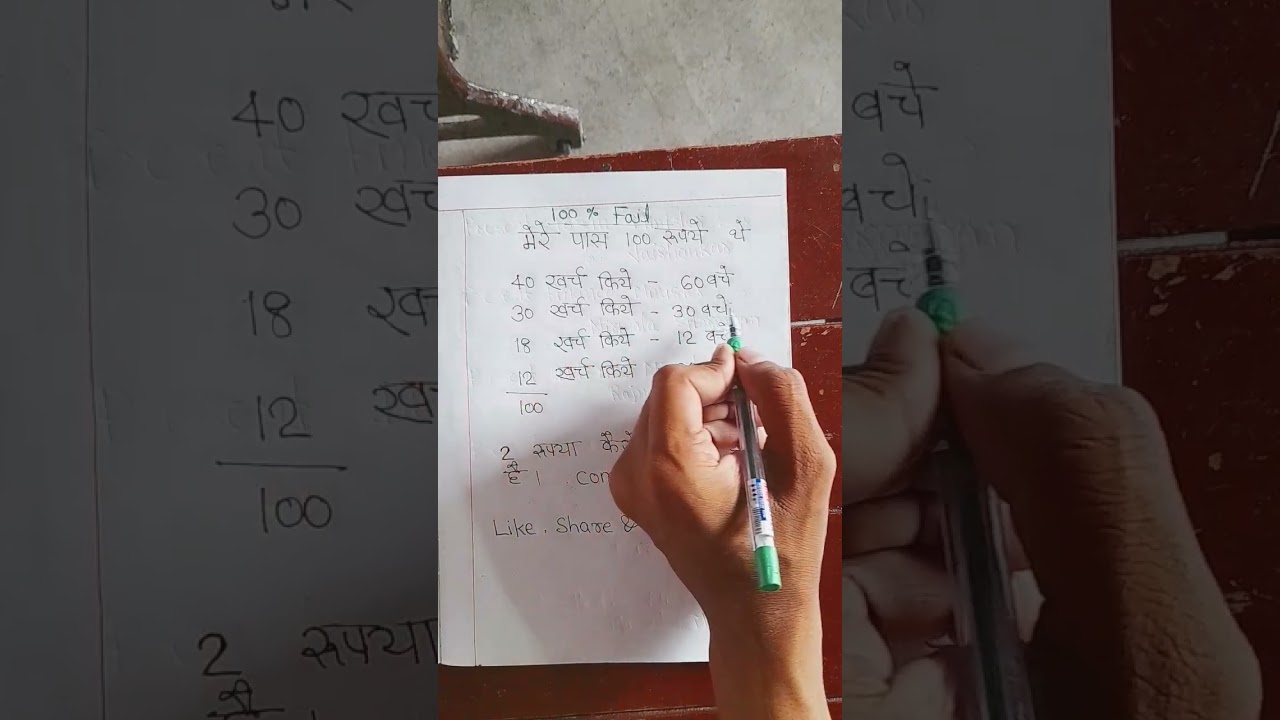 100 % Fail
मेरे पास 100 रुपये थे
40 खर्च किये - 60 बचे
30 खर्च किये - 30 बचे
18 खर्च किये - 12 बचे
12 खर्च किये
100
2 रुपया
है।
Like. Share &